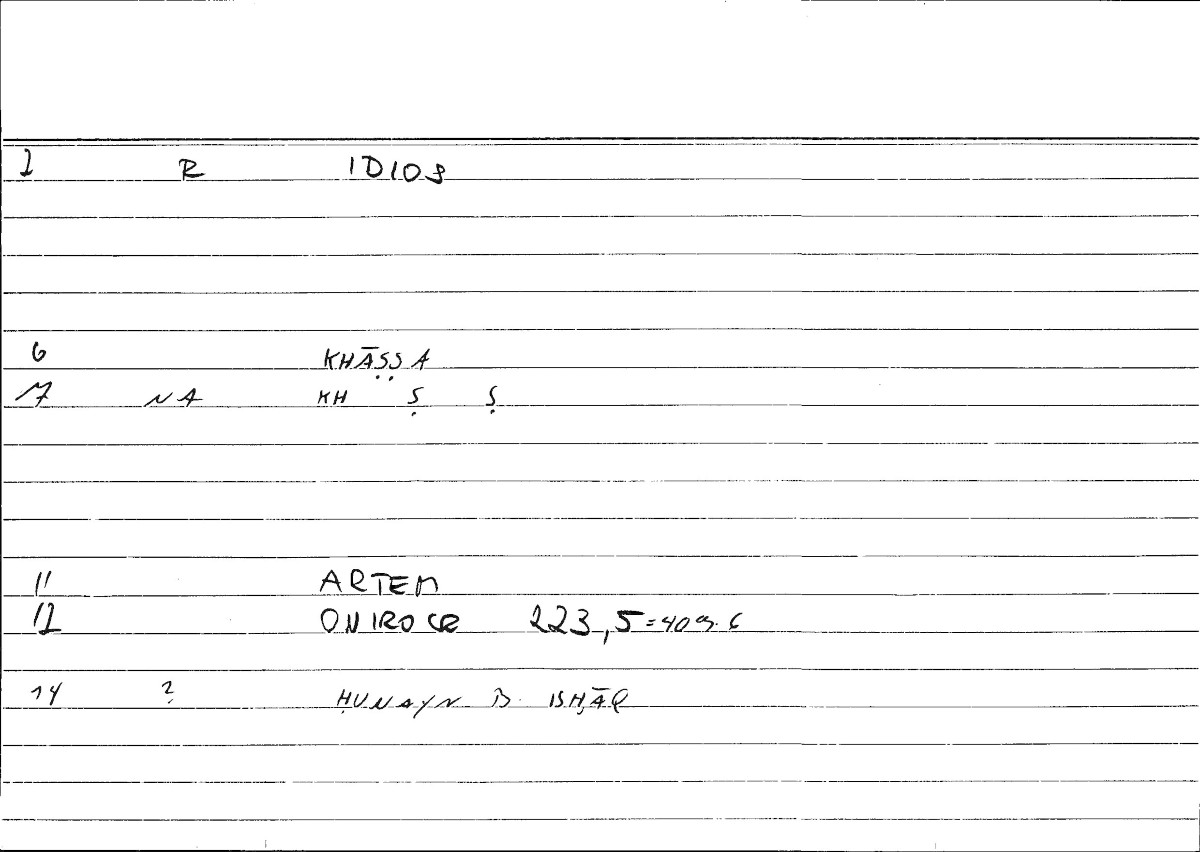 2 R IDIOS
6 KHĀṢṢA
7 NA KH Ṣ Ṣ
11 ARTEM
12 ONIROCR 223,5=409.6
14 ? ḤUNAYN B. ISḤĀQ